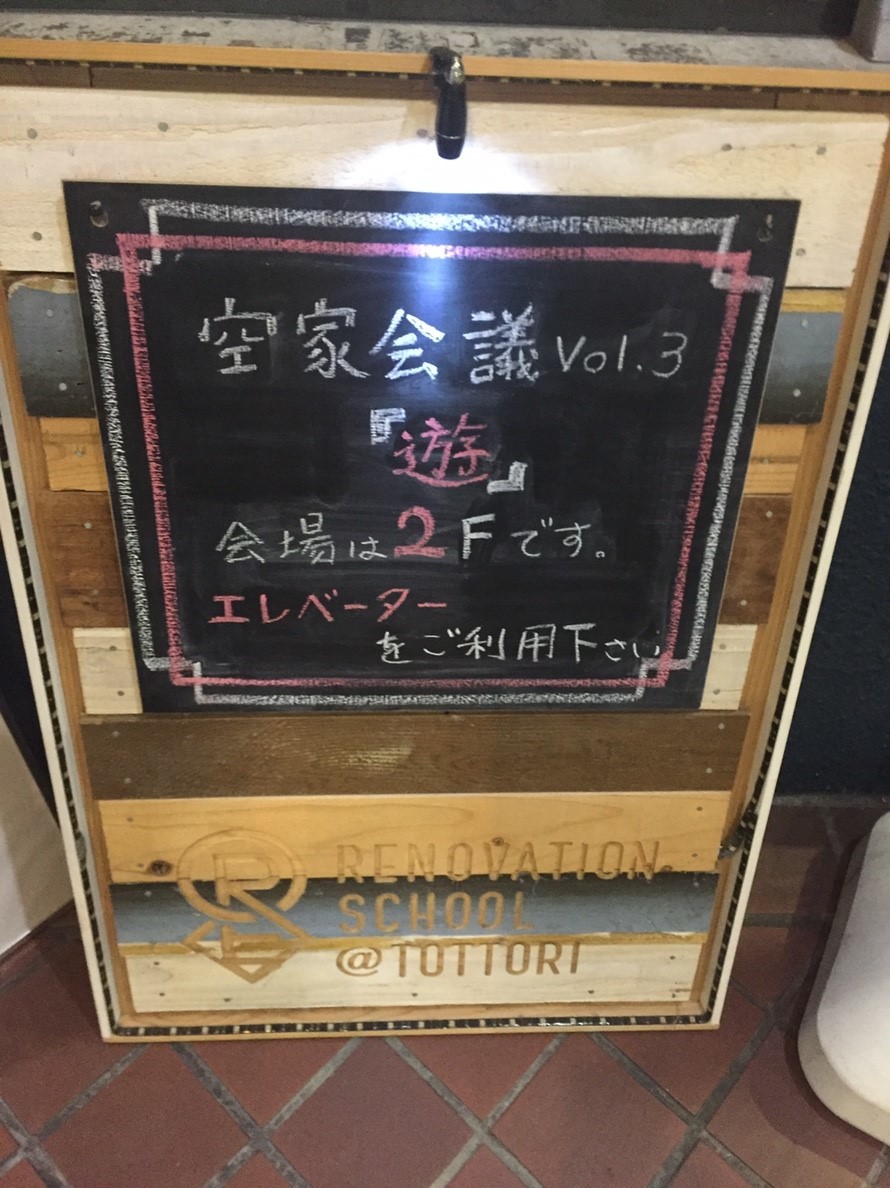 空家会議 Vol.3
『遊』
会場は2Fです。
エレベーター
をご利用下さい
RENOVATION
SCHOOL
@TOTTORI